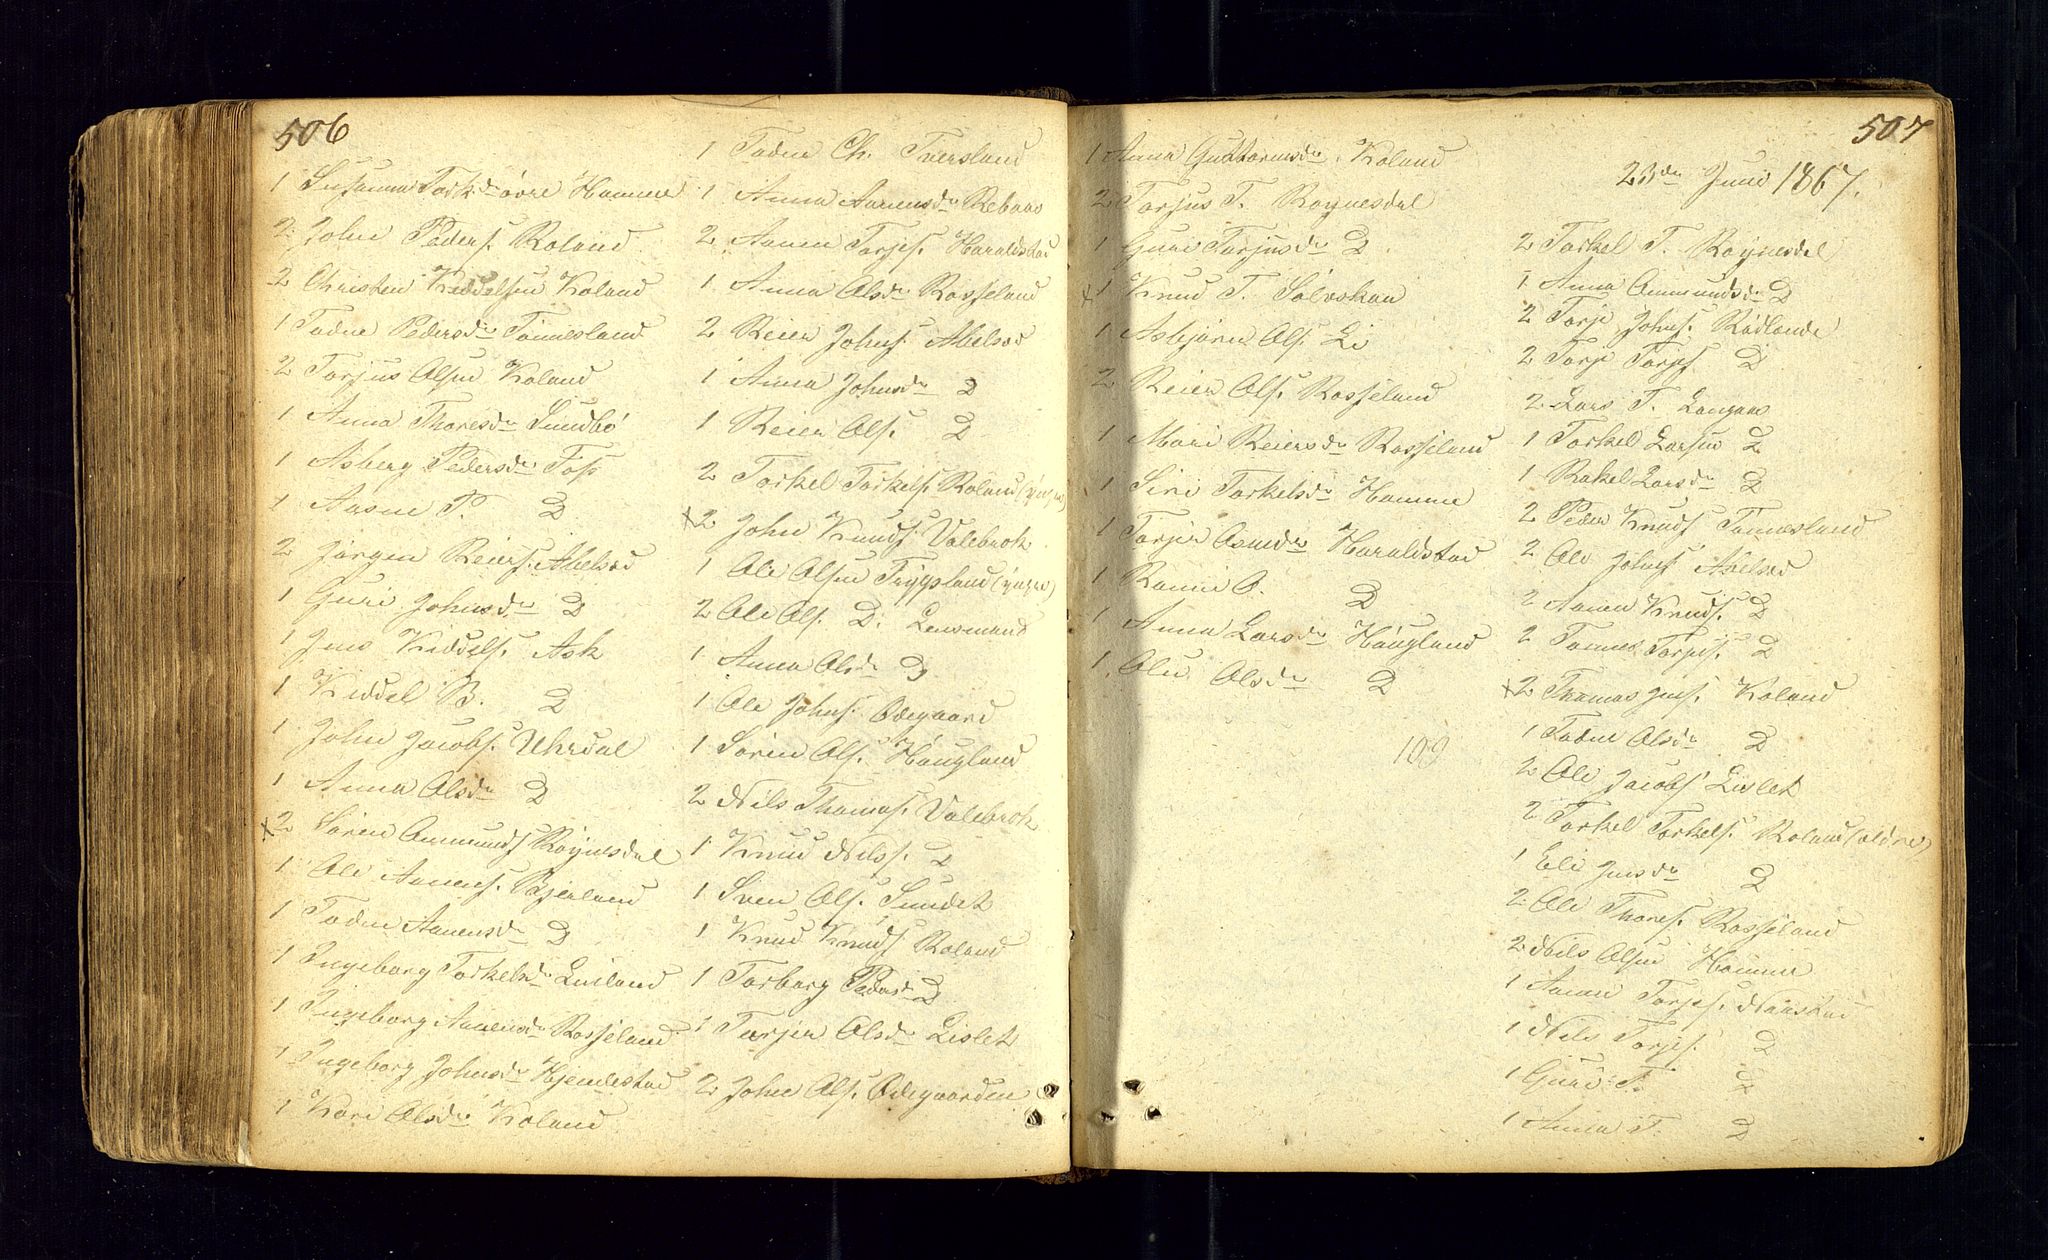 506
1 Susanna Tork.dr øvre Homme
2 John Peders. Roland
2 Christen Keddelsen Koland
1 Tadne Pedersdr Tønnesland
2 Torjus Olsen Koland
1 Anna Thoresdr Sundbø
1 Asberg Pedersdr Foss
1 Aasne P. D
2 Jørgen Reiers. Abelsod
1 Guri Johnsdr D
1 Jens Keddels. Ask
1 Keddel B. D
1 John Jacobs. Uhrdal
1 Anna Olsdr D
x2 Søren Aanmunds. Røynesdal
1 Ole Aanens. Bjerland
1 Tadne Aanensdr D
1 Ingeborg Torkelsdr Lusland
1 Ingeborg Aanensdr Rosseland
1 Ingeborg Johnsdr Hjemlestad
1 Kari Olsdr Koland
1 Tadne Ch. Tversland
1 Anna Aanensdr Rebaas
2 Aanen Torjes. Haraldstad
1 Anna Olsdr Rosseland
2 Reier Johns. Abelsod
1 Anna Johnsdr D
1 Reier Ols. D
2 Torkel Torkels. Roland (yngre)
x2 John Knuds. Valebrok
1 Ole Olsen Trygsland (yngre)
2 Ole Ols. D. Lensmand
1 Anna Olsdr D
1 Ole Johns. Ødegaard
1 Søren Ols. Høugland
2 Nils Thomas. Valebrok
1 Knud Nilss. D
1 Sven Ols. Sundet
1 Knud Knuds. Roland
1 Torborg Pedersdr D
1 Torjer Olsdr Lislet
2 John Ols. Ødegaarden
507
1 Anna Guttormsdr Koland
2 Torjus T. Røynesdal
1 Guri Torjusdr D
x1 Knud T. Sølvskaa
1 Asbjørn Ols. Li
2 Reier Ols. Rosseland
1 Mari Reiersdr Rosseland
1 Siri Torkelsdr Homme
1 Torjer Osmdr Haraldstad
1 Ronnie O. D
1 Anna Larsdr Høugland
1 Olu Olsdr D
109
23de Juni 1867.
2 Torkel T. Røynesdal
1 Anna Aanmundsdr D
2 Torje Johns. Rødlande
2 Torje Torjes. D
2 Lars T. Langaas
1 Torkel Larsen D
1 Rakel Larsdr D
2 Peder Knuds. Tønnesland
2 Ole Johns. Abelsod
2 Aanen Knuds. D
2 Tønnes Torjes. D
x2 Thomas Jens. Koland
1 Tadne Olsdr D
2 Ole Jacobs. Lislet
2 Torkel Torkels. Roland (eldre)
1 Eli Jensdr D
2 Ole Thores. Rosseland
2 Nils Olsen Homme
1 Aanen Torjes. Naastad
1 Nils Torjes. D
1 Guri T. D
1 Anna T. D